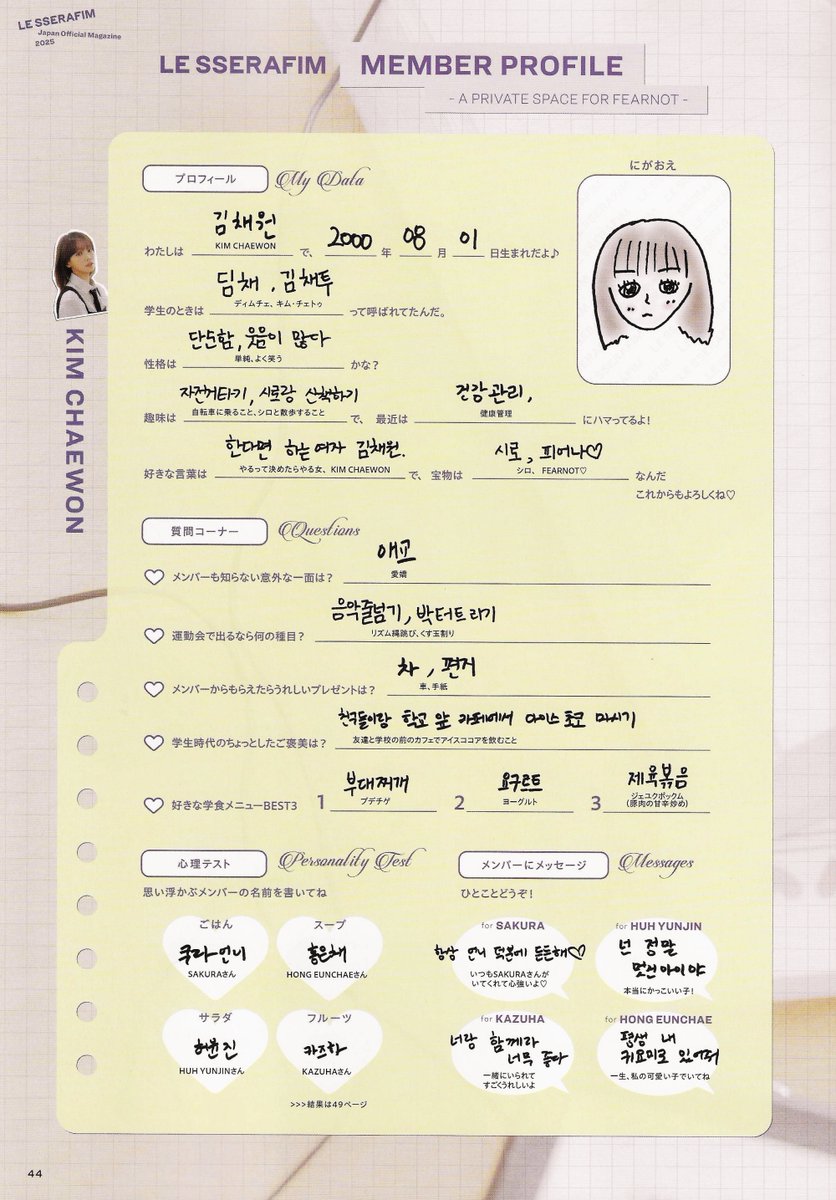 LE SSERAFIM
Japan Official Magazine
2025
LE SSERAFIM MEMBER PROFILE
- A PRIVATE SPACE FOR FEARNOT -
KIM CHAEWON
プロフィール My Data
にがおえ
김채원 2000 08 01
わたしは KIM CHAEWON で、 年 月 日生まれだよ♪
딤채, 김채투
学生のときは ディムチェ、キム・チェトゥ って呼ばれてたんだ。
단순함, 웃음이 많다
性格は 単純、よく笑う かな?
자전거타기, 시로랑 산책하기 건강관리,
趣味は 自転車に乗ること、シロと散歩すること で、 最近は 健康管理 にハマってるよ!
한다면 하는 여자 김채원. 시로, 피어나♡
好きな言葉は やるって決めたらやる女、KIM CHAEWON で、宝物は シロ、FEARNOT♡ なんだ
これからもよろしくね♡
質問コーナー Questions
애교
メンバーも知らない意外な一面は? 愛嬌
음악줄넘기, 박터트리기
運動会で出るなら何の種目? リズム縄跳び、くす玉割り
차, 편지
メンバーからもらえたらうれしいプレゼントは? 車、手紙
친구들이랑 학교 앞 카페에서 아이스 초코 마시기
学生時代のちょっとしたご褒美は? 友達と学校の前のカフェでアイスココアを飲むこと
부대찌개 요구르트 제육볶음
好きな学食メニューBEST3 1 プデチゲ 2 ヨーグルト 3 ジェユクポックム
(豚肉の甘辛炒め)
心理テスト Personality Test
思い浮かぶメンバーの名前を書いてね
ごはん
쿠라언니
SAKURAさん
スープ
홍은채
HONG EUNCHAEさん
サラダ
허윤진
HUH YUNJINさん
フルーツ
카즈하
KAZUHAさん
>>>結果は49ページ
メンバーにメッセージ Messages
ひとことどうぞ!
for SAKURA
항상 언니 덕분에 든든해♡
いつもSAKURAさんが
いてくれて心強いよ♡
for HUH YUNJIN
넌 정말
멋진아이야
本当にかっこいい子!
for KAZUHA
너랑 함께라
너무 좋다
一緒にいられて
すごくうれしいよ
for HONG EUNCHAE
평생 내
귀요미로 있어줘
一生、私の可愛い子でいてね
44